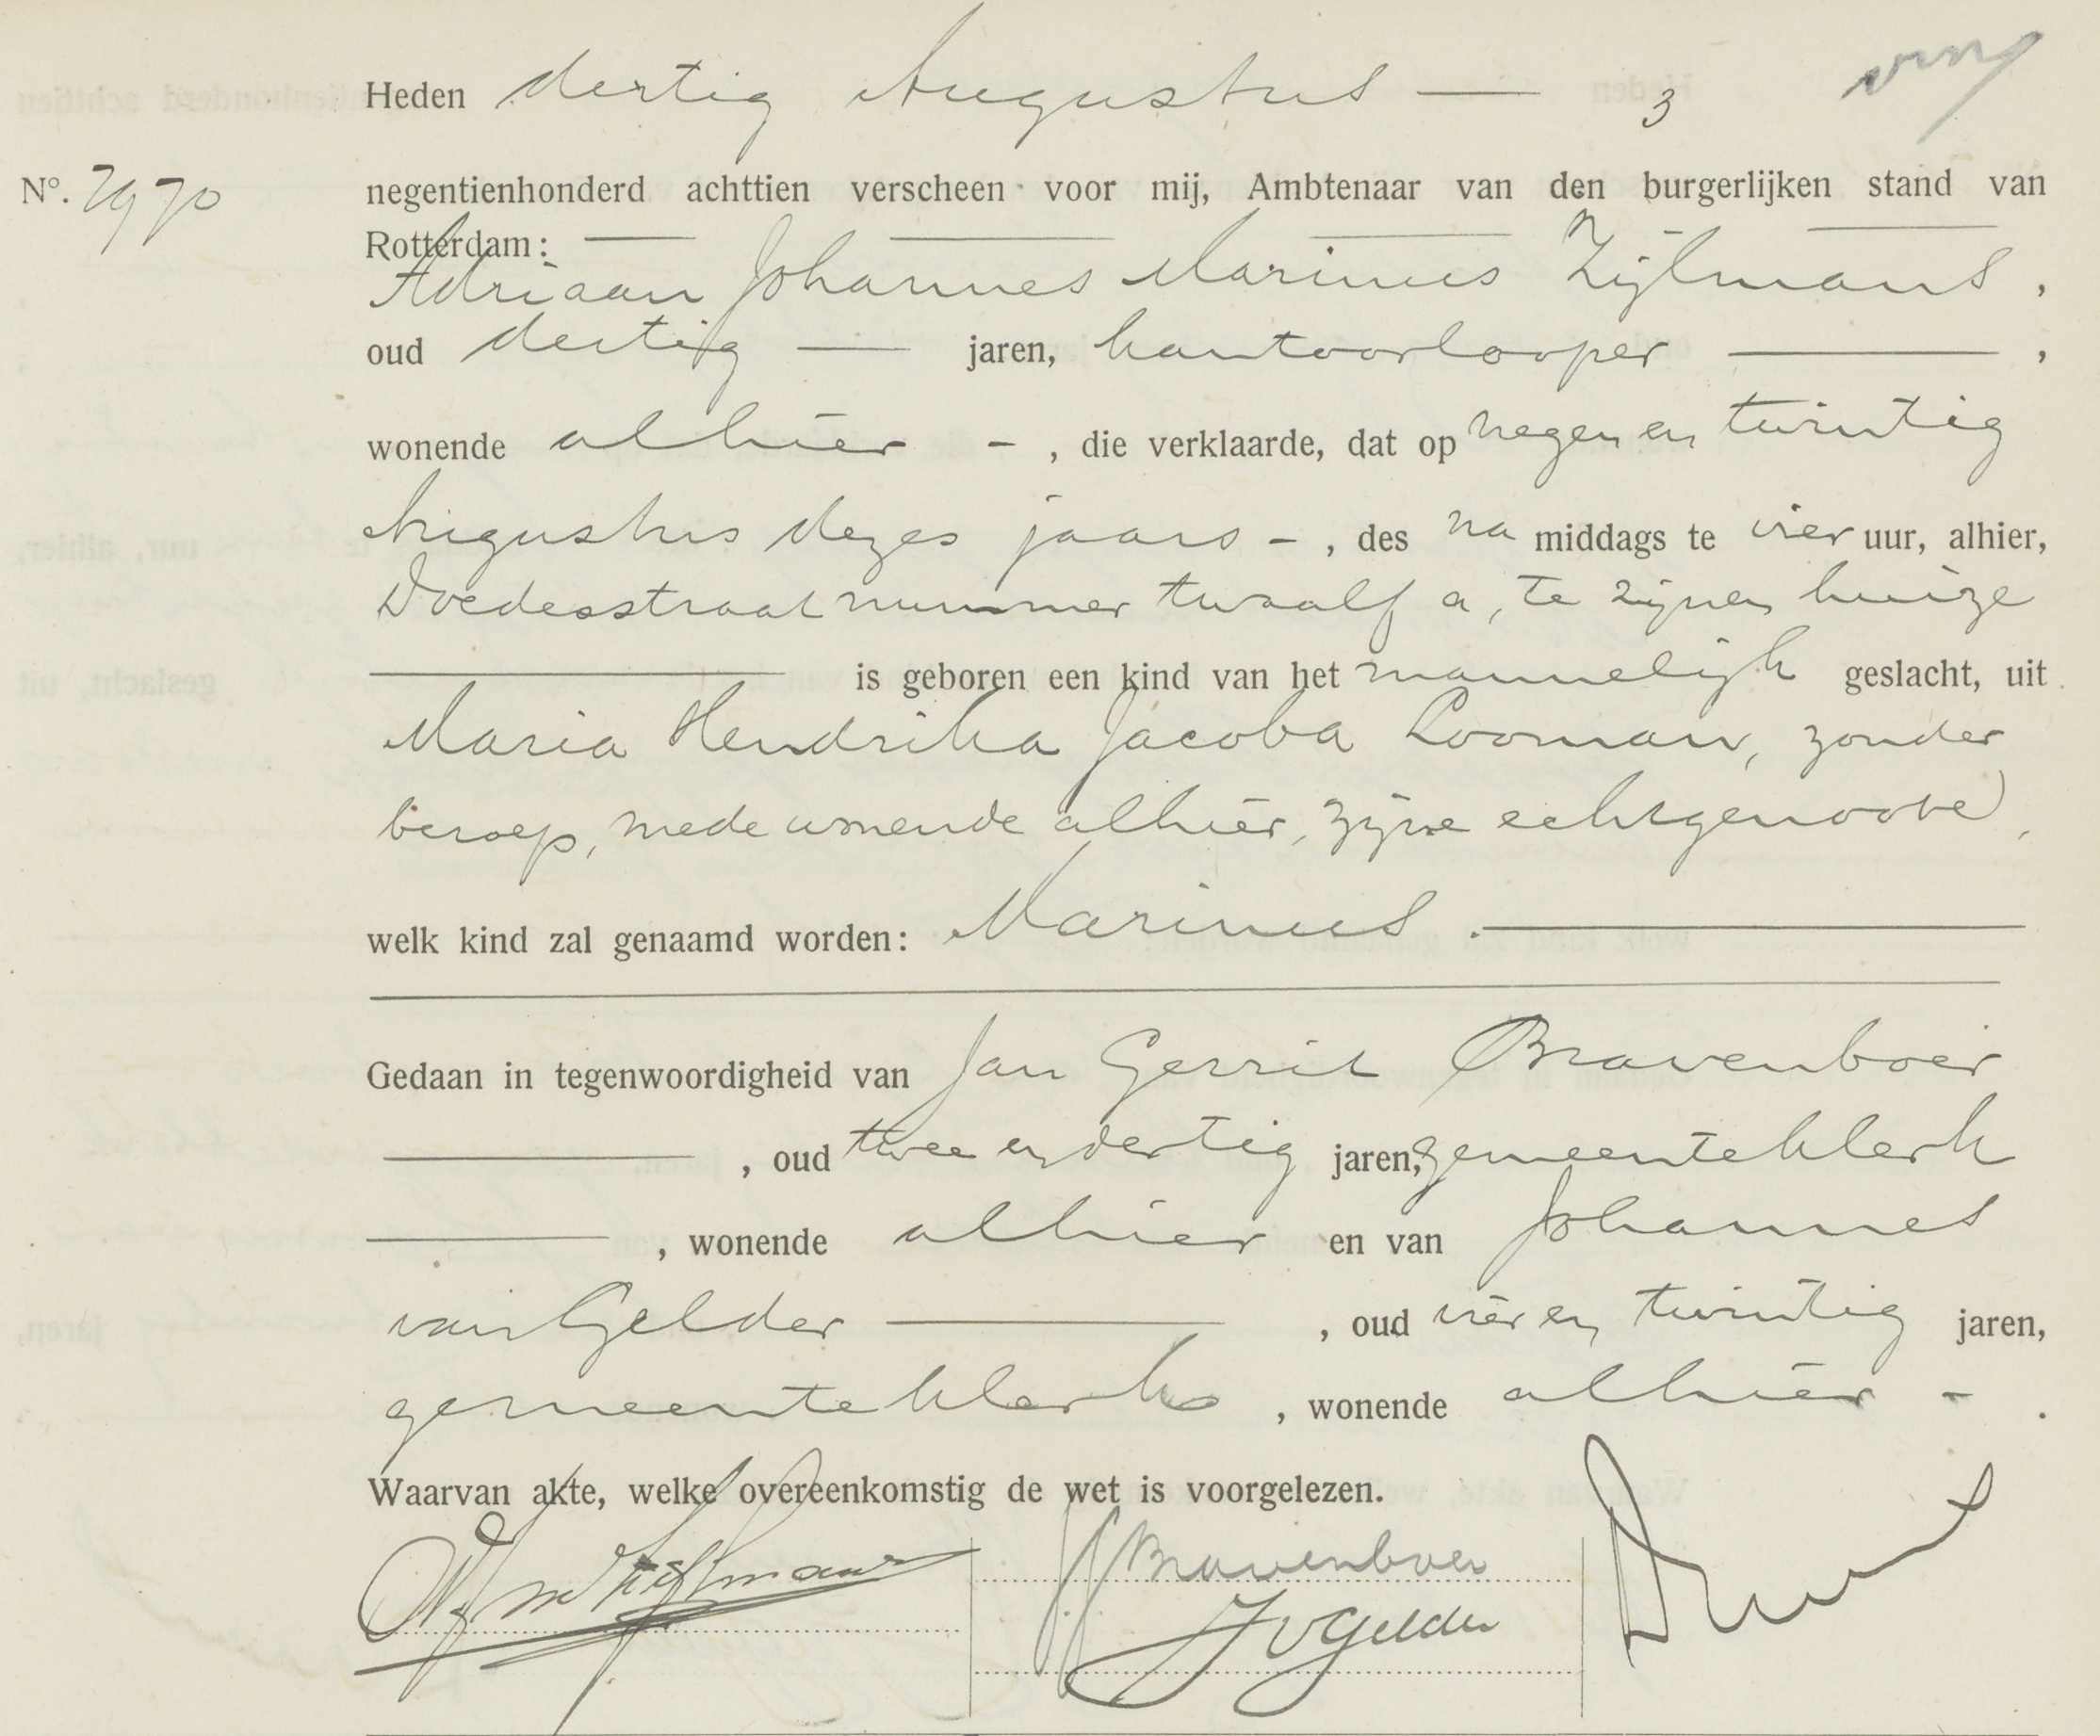 Heden dertig Augustus — 3
Nº. 7970
negentienhonderd achttien verscheen voor mij, Ambtenaar van den burgerlijken stand van
Rotterdam:
Adriaan Johannes Marinus Zijlmans,
oud dertig — jaren, kantoorlooper —,
wonende alhier -, die verklaarde, dat op negen en twintig
Augustus dezes jaars -, des na middags te vier uur, alhier,
Doedesstraat nummer twaalf a, te zijnen huize
— is geboren een kind van het mannelijk geslacht, uit
Maria Hendrika Jacoba Looman, zonder
beroep, mede wonende alhier, zijne echtgenoote,
welk kind zal genaamd worden: Marinus. —
Gedaan in tegenwoordigheid van Jan Gerrit Bravenboer
—, oud twee en dertig jaren, gemeenteklerk
—, wonende alhier en van Johannes
van Gelder —, oud vier en twintig jaren,
gemeenteklerk, wonende alhier - .
Waarvan akte, welke overeenkomstig de wet is voorgelezen.
Zijlmans
JG Bravenboer
J v Gelder